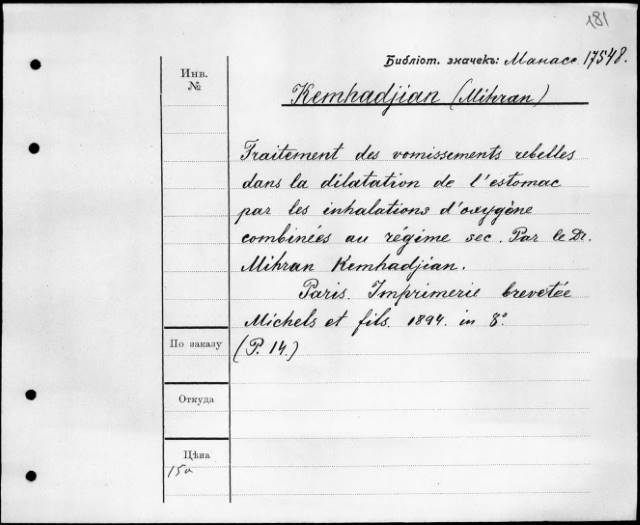 181
Библіот. значекъ: Манасс 17548.
Инв.
№
Kemhadjian (Mihran)
Traitement des vomissements rebelles
dans la dilatation de l'estomac
par les inhalations d'oxygène
combinées au régime sec. Par le Dr.
Mihran Kemhadjian.
Paris. Imprimerie brevetée
Michels et fils. 1894. in 8°
(P. 14.)
По заказу
Откуда
Цѣна